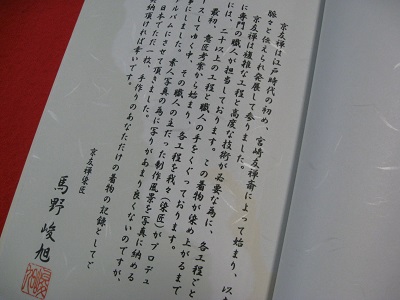 京友禅は江戸時代の初め、宮崎友禅斎によって始まり、以
脈々と伝えられ発展して参りました。
京友禅は複雑な工程と高度な技術が必要な為に、各工程ごと
に専門の職人が担当しております。この着物が染め上がるまで
には、二十以上の工程と職人の手をくぐっております。
最初、意匠考案から始まり、各工程を我々(染匠)がプロデュ
ースしてゆく中、その職人の主だった制作風景を写真に納める
事にしました。素人写真の為に写りがあまり良くないのですが、
ルバムにさせて頂きました。
日本でただ一枚、手作りのあなただけの着物の記録としてご
納頂ければ幸いです。
京友禅染匠
馬野峻旭